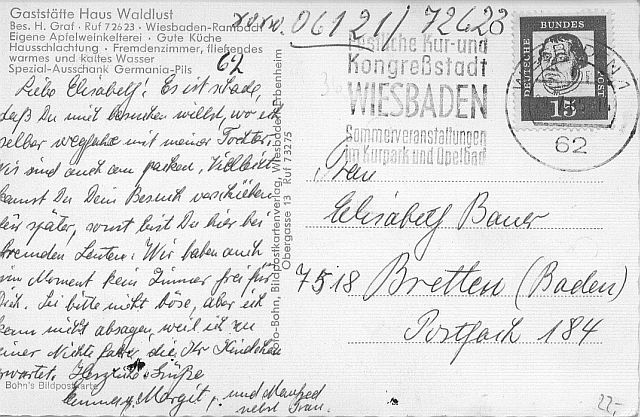 Gaststätte Haus Waldlust
Bes. H. Graf · Ruf 72623 · Wiesbaden-Rambach
Eigene Apfelweinkelterei · Gute Küche
Hausschlachtung · Fremdenzimmer, fließendes
warmes und kaltes Wasser
Spezial-Ausschank Germania-Pils
vorw. 06121/72623
62
Liebe Elisabeth! Es ist schade,
daß Du mich besuchen willst, wo ich
selber wegfahre mit meiner Tochter,
Wir sind auch am packen, Vielleicht
kannst Du Dein Besuch verschieben
für später, sonst bist Du hier bei
fremden Leuten. Wir haben auch
im Moment kein Zimmer frei für
Dich. Sei bitte nicht böse, aber ich
kann nicht absagen, weil ich zu
einer Nichte fahre, die Ihr Kindchen
erwartet. Herzliche Grüße
Margit, und Manfred
nebst Frau.
Bohn's Bildpostkarte
Foto-Bohn, Bildpostkartenverlag, Wiesbaden-Erbenheim
Obergasse 13 Ruf 73275
Festliche Kur- und
Kongreßstadt
WIESBADEN
Sommerveranstaltungen
im Kurpark und Opelbad
DEUTSCHE BUNDES POST
15
WIESBADEN 1
62
Frau
Elisabeth Bauer
7518 Bretten (Baden)
Postfach 184
22,-